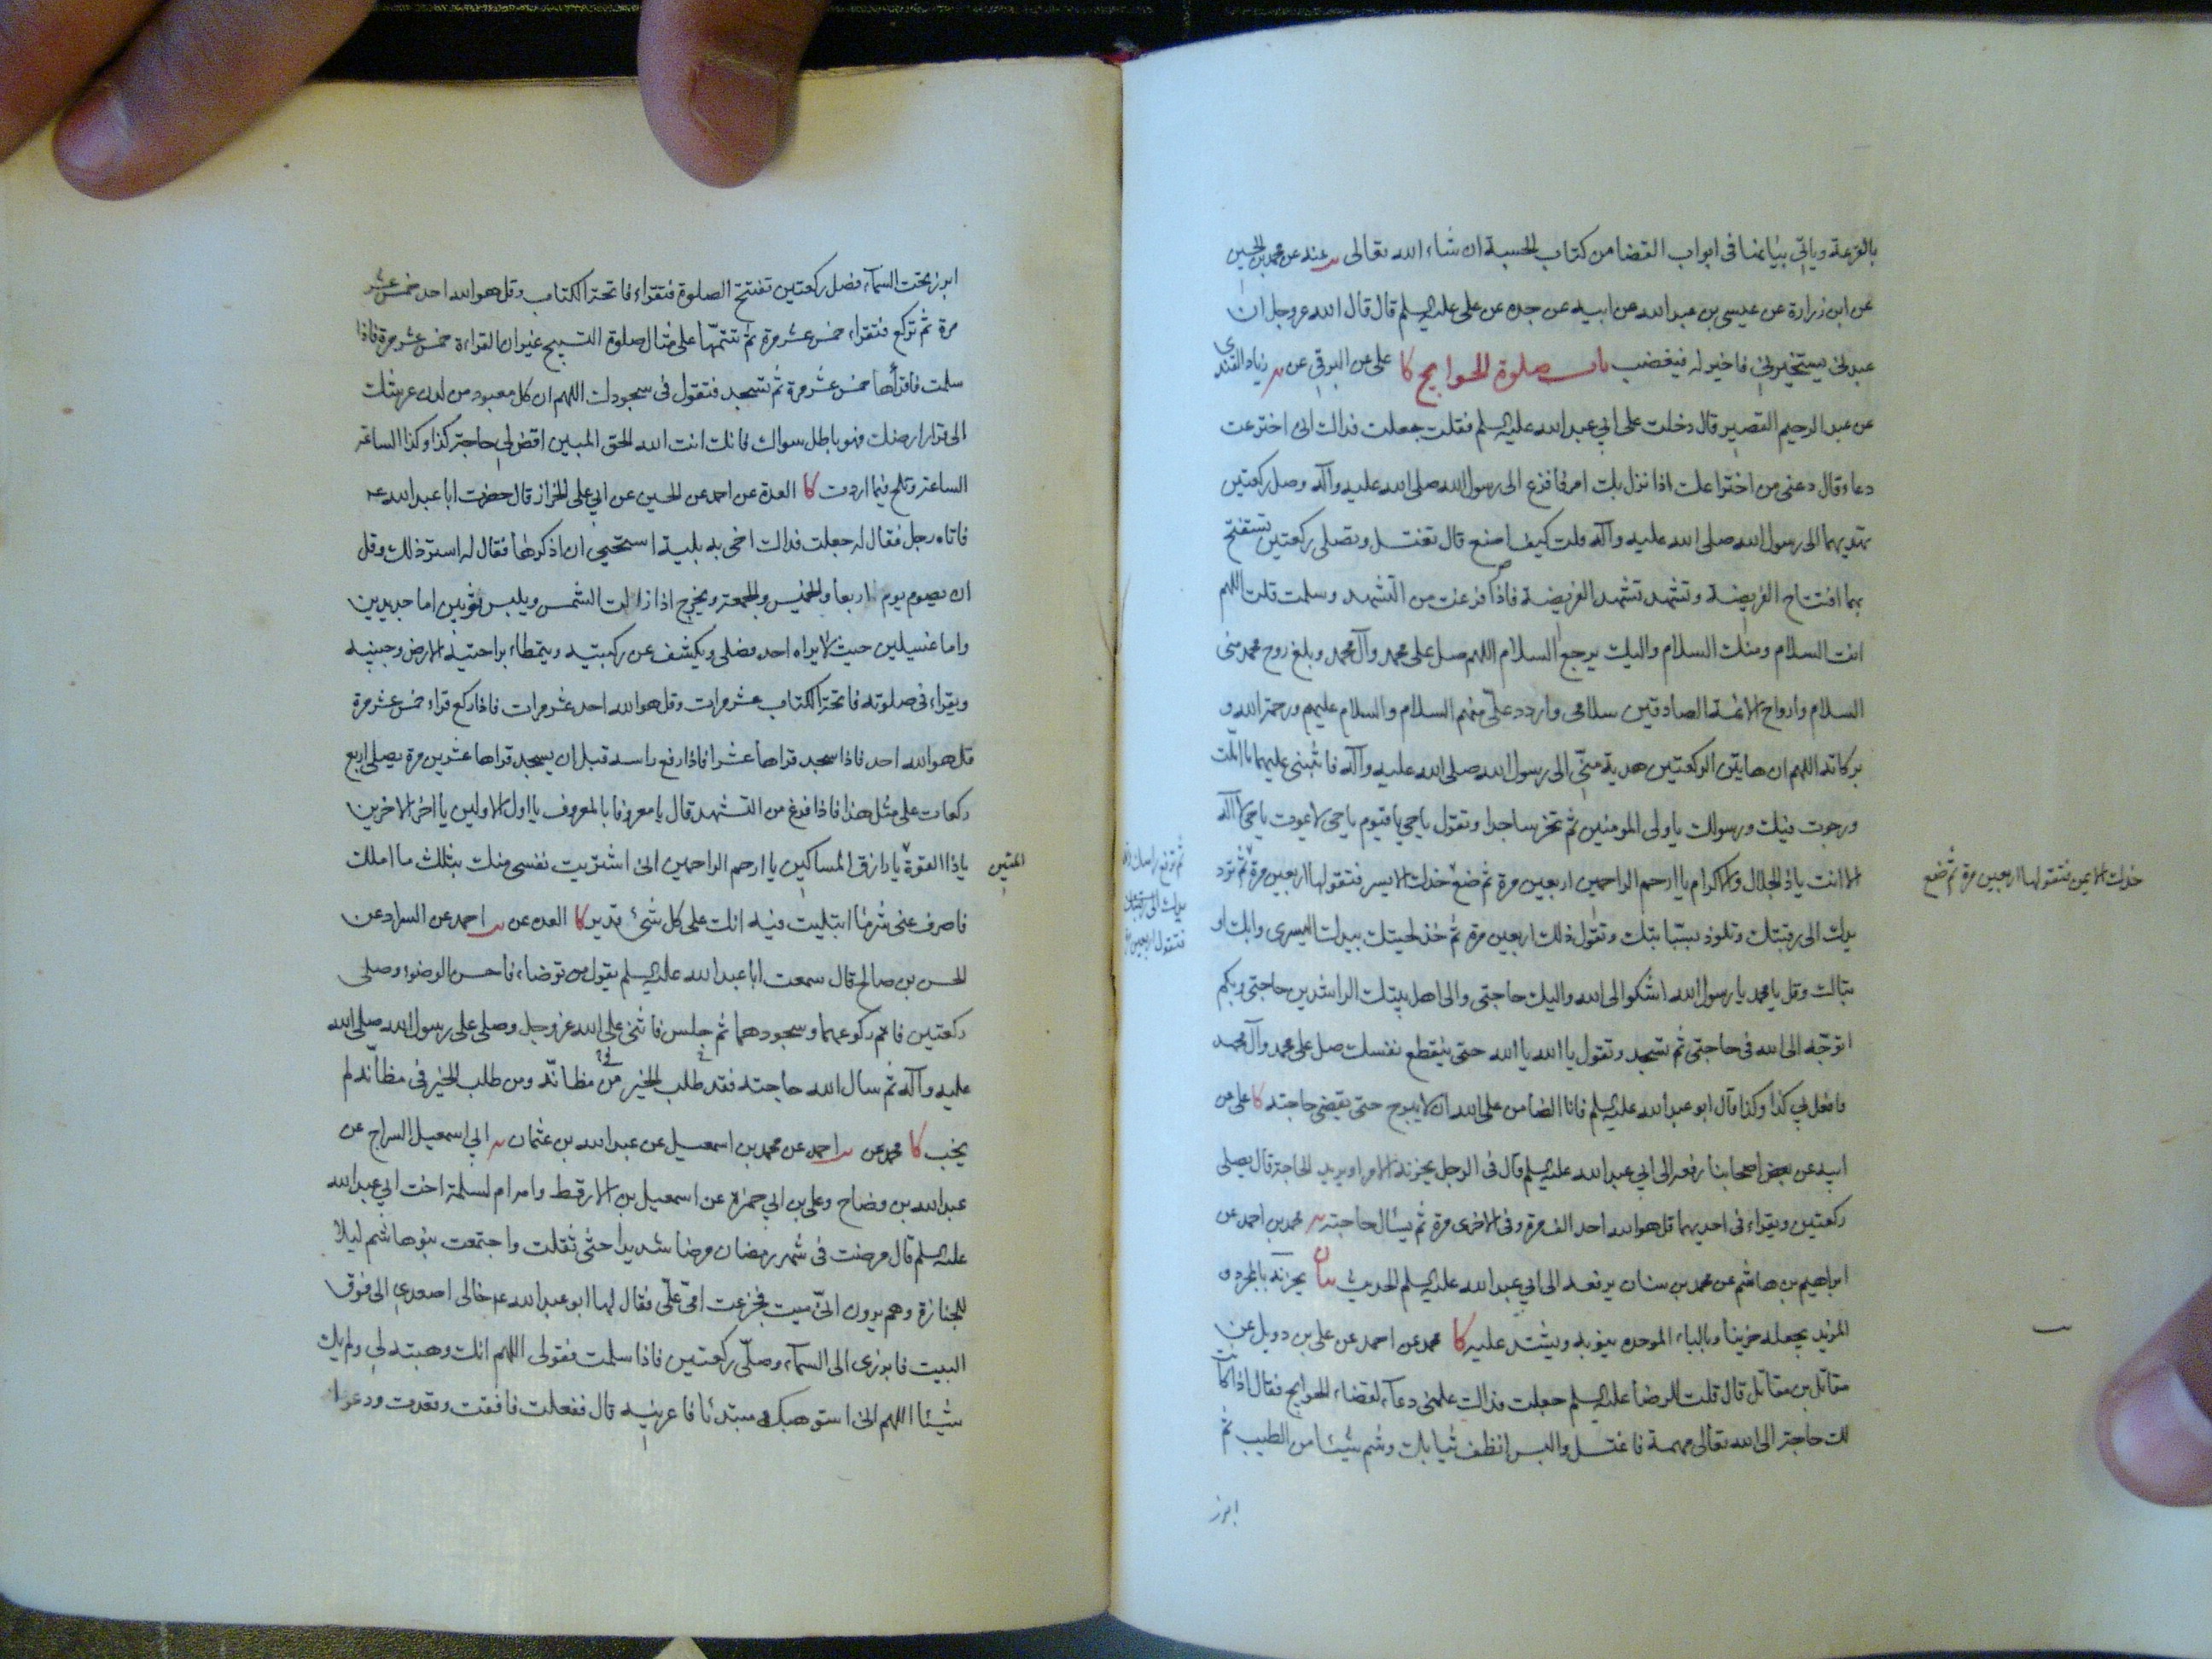 بالقرعة وياتي بيانها في ابواب القضا من كتاب الحسبة ان شاء الله تعالى يه عنه عن محمد بن الحسين
عن ابن زرارة عن عيسى بن عبد الله عن ابيه عن جده عن علي عليه السلم قال قال الله عز وجل ان
عبدي يستخيرني فاخير له فيغضب باب صلوة الحوايج كا علي عن البرقي عن يه زياد القندي
عن عبد الرحيم القصير قال دخلت على ابي عبد الله عليه السلم فقلت جعلت فداك اني اخترعت
دعاء قال دعني من اختراعك اذا نزل بك امر فافزع الى رسول الله صلى الله عليه وآله وصل ركعتين
تهديهما الى رسول الله صلى الله عليه وآله قلت كيف اصنع قال تغتسل وتصلي ركعتين تستفتح
بهما افتتاح الفريضة وتشهد تشهد الفريضة فاذا فرغت من التشهد وسلمت قلت اللهم
انت السلام ومنك السلام واليك يرجع السلام اللهم صل على محمد وآل محمد وبلغ روح محمد مني
السلام وارواح الائمة الصادقين سلامي واردد علي منهم السلام والسلام عليهم ورحمة الله و
بركاته اللهم ان هاتين الركعتين هدية مني الى رسول الله صلى الله عليه وآله فاثبني عليهما ما املت
ورجوت فيك ورسولك يا ولي المومنين ثم تخر ساجدا وتقول يا حي يا قيوم يا حي لا يموت يا حي لا اله
الا انت يا ذا الجلال والاكرام يا ارحم الراحمين اربعين مرة ثم ضع خدك الايسر فتقولها اربعين مرة ثم ترد
خدك الايمن فتقولها اربعين مرة ثم تضع
ثم ترفع راسك
يدك الى رقبتك وتلوذ بسبابتك وتقول ذلك اربعين مرة ثم خذ لحيتك بيدك اليسرى وابك او
تباك وقل يا محمد يا رسول الله اشكو الى الله واليك حاجتي والى اهل بيتك الراشدين حاجتي وبكم
اتوجه الى الله في حاجتي ثم تسجد وتقول يا الله يا الله حتى ينقطع نفسك صل على محمد وآل محمد
وافعل بي كذا وكذا قال ابو عبد الله عليه السلم فانا الضامن على الله ان لا يبرح حتى يقضي حاجته كا علي عن
ابيه عن بعض اصحابنا رفعه الى ابي عبد الله عليه السلم قال في الرجل يحزنه الامر او يريد الحاجة قال يصلي
ركعتين ويقراء في احديهما قل هو الله احد الف مرة وفي الاخرى مرة ثم يسال حاجته يه محمد بن احمد عن
ابراهيم بن هاشم عن محمد بن سنان يرفعه الى ابي عبد الله عليه السلم الحديث بيان يحزنه بالمجرد و
المزيد يجعله حزينا وبالباء الموحده ينوبه ويشتد عليه كا محمد عن احمد عن علي بن دويل عن
مقاتل بن مقاتل قال قلت للرضا عليه السلم جعلت فداك علمني دعاء لقضاء الحوايج فقال اذا كانت
لك حاجة الى الله تعالى مهمة فاغتسل والبس انظف ثيابك وشم شيئا من الطيب ثم
ابرز
ابرز تحت السماء فصل ركعتين تفتتح الصلوة فتقراء فاتحة الكتاب وقل هو الله احد خمس عشر
مرة ثم تركع فتقراء خمس عشر مرة ثم تتمها على مثال صلوة التسبيح غير ان القراءة خمس عشر مرة فاذا
سلمت فاقراها خمس عشر مرة ثم تسجد فتقول في سجودك اللهم ان كل معبود من لدن عرشك
الى قرار ارضك فهو باطل سواك فانك انت الله الحق المبين اقض لي حاجة كذا وكذا الساعة
الساعة وتلح فيما اردت كا العدة عن احمد عن الحسين عن ابي علي الخزاز قال حضرت ابا عبد الله عه
فاتاه رجل فقال له جعلت فداك اخي به بلية استحيي ان اذكرها فقال له استر ذلك وقل
ان يصوم يوم الاربعا والخميس والجمعة ويخرج اذا زالت الشمس ويلبس ثوبين اما جديدين
واما غسيلين حيث لا يراه احد فصلي ويكشف عن ركبتيه ويتمطاء براحتيه الارض وجبينيه
ويقراء في صلوته فاتحة الكتاب عشر مرات وقل هو الله احد عشر مرات فاذا ركع قراء خمس عشر مرة
قل هو الله احد فاذا سجد قراها عشرا فاذا رفع راسه قبل ان يسجد قراها عشرين مرة يصلي اربع
ركعات على مثل هذا فاذا فرغ من التشهد قال يا معروفا بالمعروف يا اول الاولين يا اخر الاخرين
يا ذا القوة يا رازق المساكين يا ارحم الراحمين اني اشتريت نفسي منك بثلث ما املك
المتين
فاصرف عني شر ما ابتليت فيه انك على كل شئ قدير كا العده عن يه احمد عن السراد عن
الحسن بن صالح قال سمعت ابا عبد الله عليه السلم يقول من توضاء فاحسن الوضوء وصلى
ركعتين فاتم ركوعهما وسجودهما ثم جلس فاثنى على الله عز وجل وصلى على رسول الله صلى الله
عليه وآله ثم سال الله حاجته فقد طلب الخير من مظانه ومن طلب الخير في مظانه لم
يخب كا محمد عن يه احمد عن محمد بن اسمعيل عن عبد الله بن عثمان يه ابي اسمعيل السراج عن
عبد الله بن وضاح وعلي بن ابي حمزة عن اسمعيل بن الارقط وامه ام لسلمة اخت ابي عبد الله
عليه السلم قال مرضت في شهر رمضان مرضا شديدا حتى ثقلت واجتمعت بنو هاشم ليلا
للجنازة وهم يرون اني ميت فجزعت امي علي فقال لها ابو عبد الله عه خالي اصعدي الى فوق
البيت فابرزي الى السماء وصلي ركعتين فاذا سلمت فقولي اللهم انك وهبته لي ولم يك
شيئا اللهم اني استوهبك مبتدئا فاعرنيه قال ففعلت فافقت وقعدت ودعوا